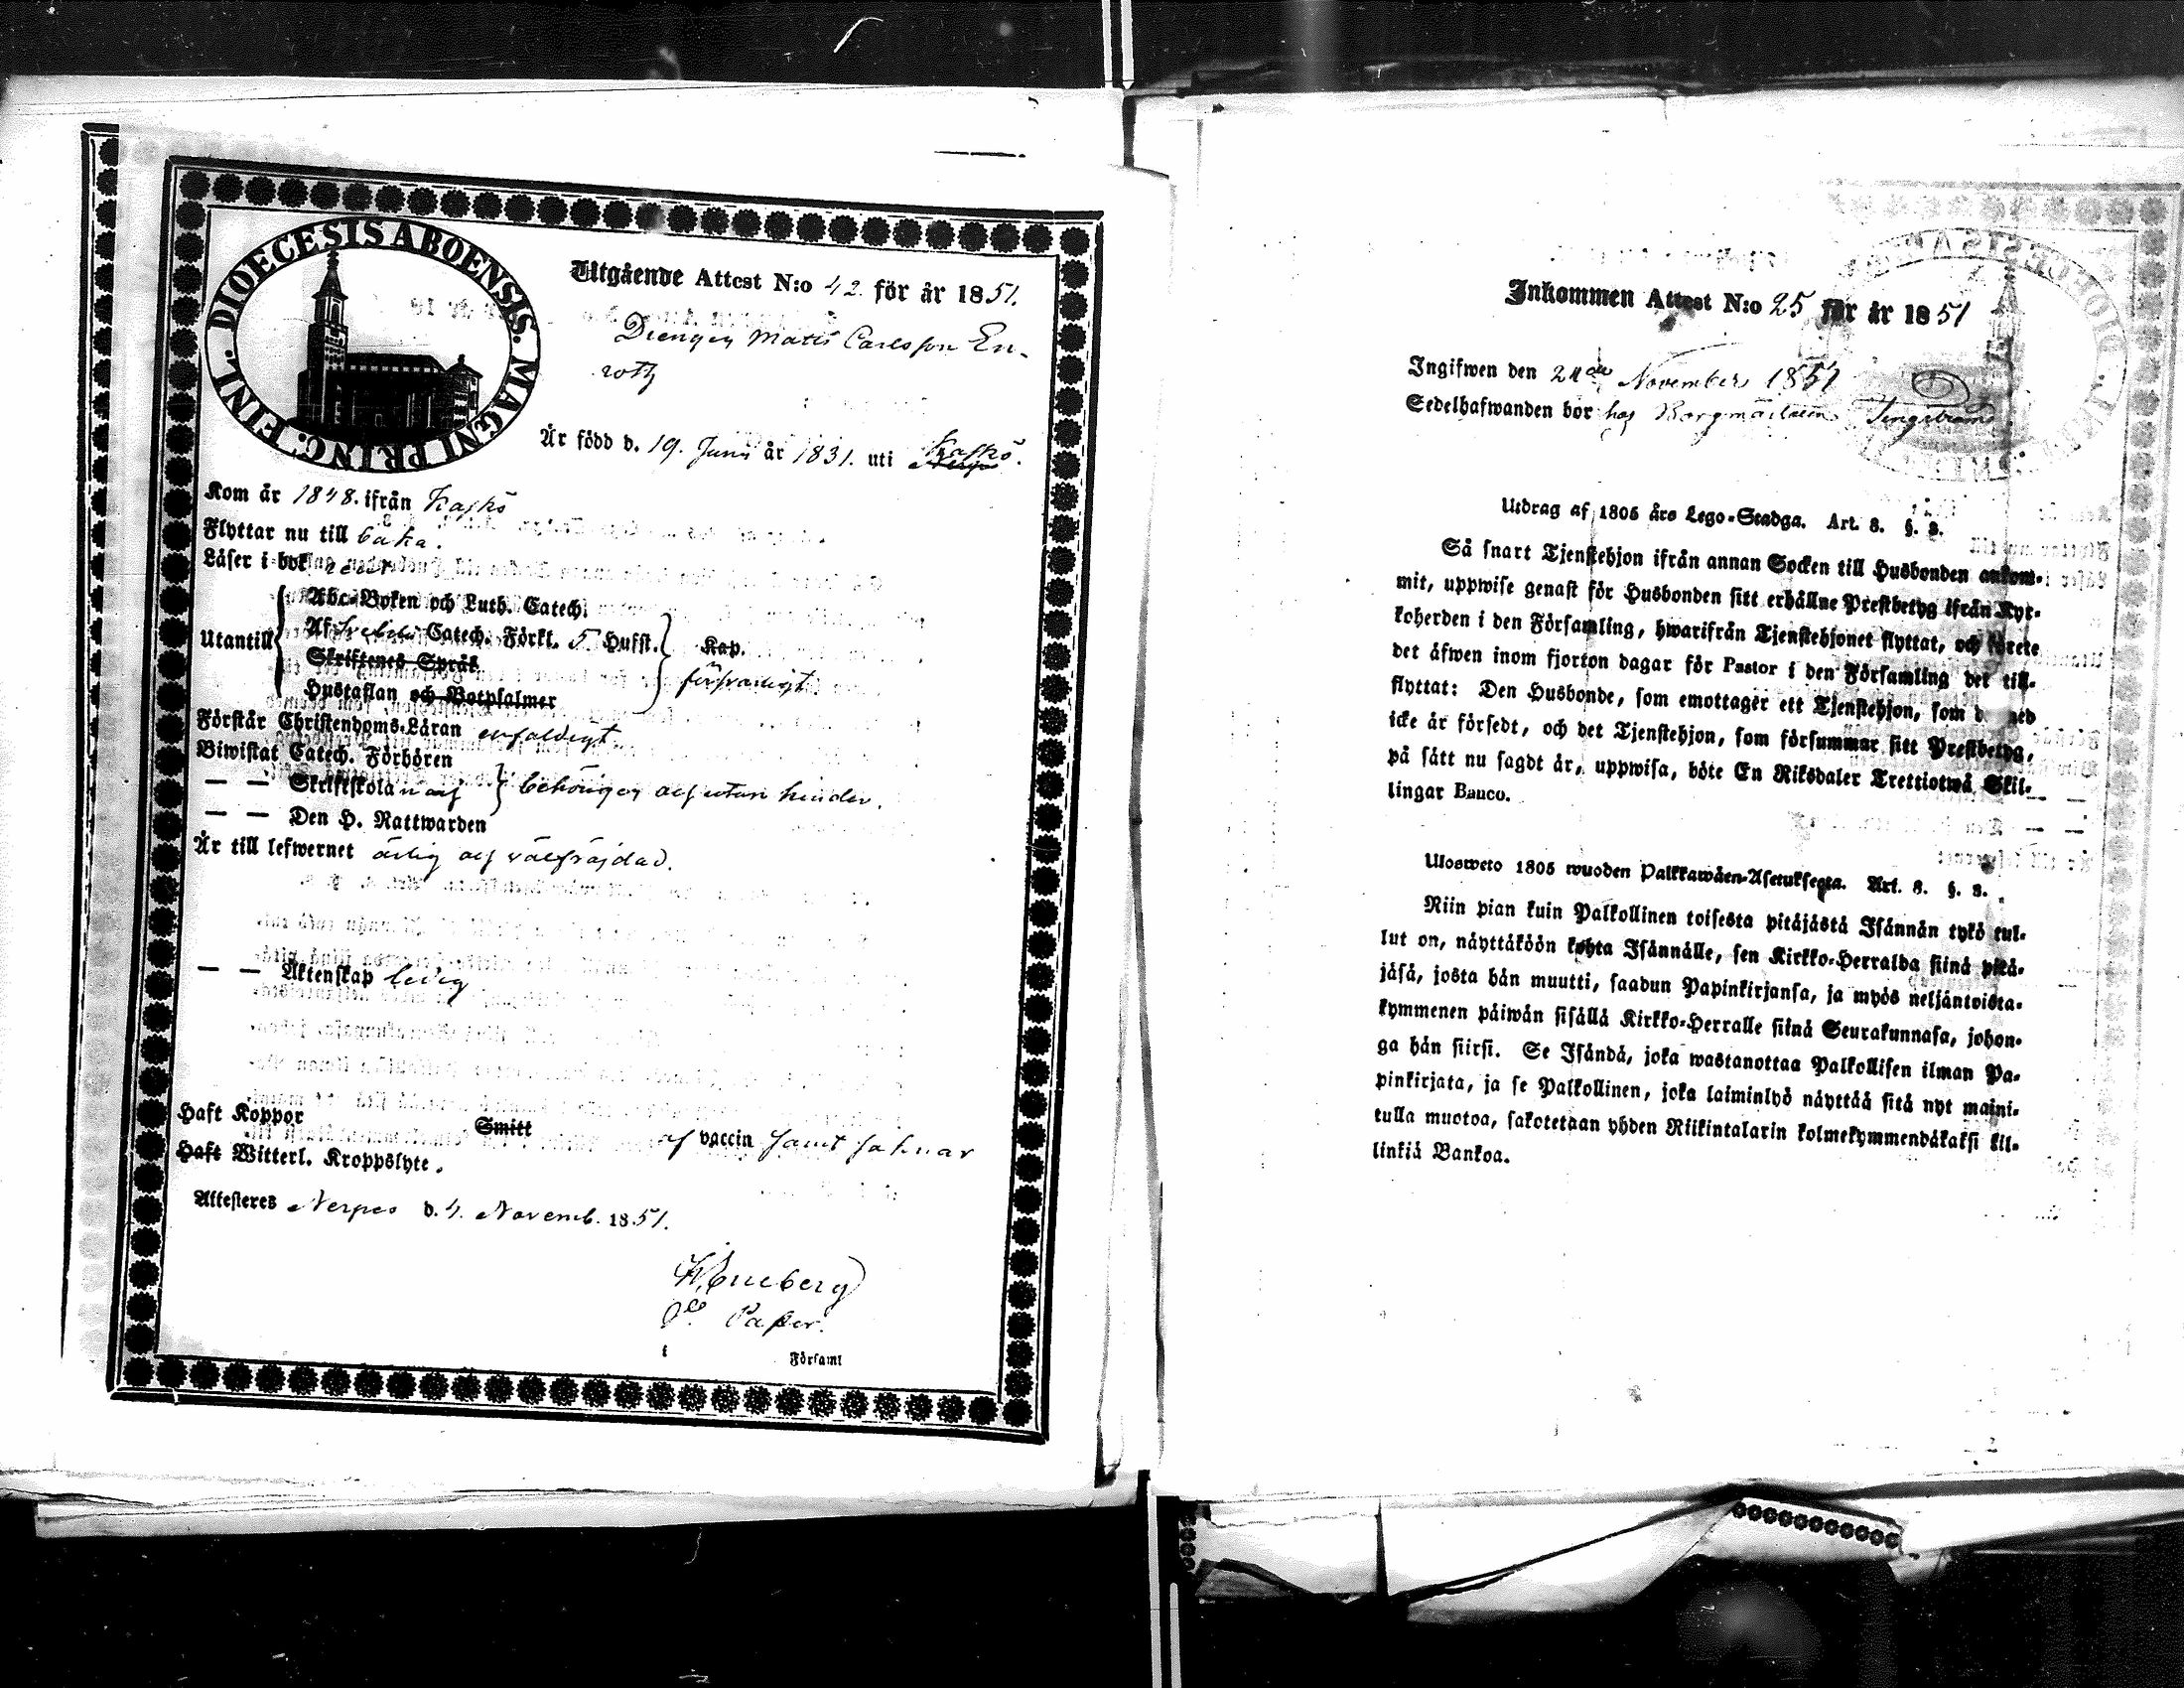 DIOECESIS ABOENSIS. MAGNI PRINC. FINL.
Utgående Attest N:o 42. för år 1851.
Drengen Matts Carlsson En-
roth
Är född d. 19. Junii år 1831. uti Kaskö.
Kom år 1848. ifrån Kaskö
Flyttar nu till baka.
Läser i bok
Utantill
Abc-Boken och Luth. Catech.
Af Svebelii Catech. Förkl. 5 Hufst. Kap.
Skriftenes Språk
Hustaflan och Botpsalmer
försvarligt
Förstår Christendoms-Läran enfaldigt
Biwistat Catech. Förhören
— — Skriftskolan och behörigen och utan hinder.
— — Den H. Nattwarden
Är till lefwernet ärlig och välfräjdad.
— — Äktenskap ledig
Haft Koppor Smitt af vaccin samt saknar
Haft Witterl. Kroppslyte.
Attesteres Nerpes d. 4. Novemb. 1851.
Församl
Inkommen Attest N:o 25 för år 1851
Ingifwen den 24de November 1851
Sedelhafwanden bor hos Borgmästaren
Utdrag af 1805 års Lego-Stadga. Art. 8. §. 3.
Så snart Tjenstehjon ifrån annan Socken till Husbonden ankom-
mit, uppwise genast för Husbonden sitt erhållne Prestbetyg ifrån Kyr-
koherden i den Församling, hwarifrån Tjenstehjonet flyttat, och förete
det äfwen inom fjorton dagar för Pastor i den Församling det till-
flyttat: Den Husbonde, som emottager ett Tjenstehjon, som dermed
icke är försedt, och det Tjenstehjon, som försummar sitt Prestbetyg,
på sätt nu sagdt är, uppwisa, böte En Riksdaler Trettiotwå Skil-
lingar Banco.
Ulosweto 1805 wuoden Palkkawäen-Asetuksesta. Art. 8. §. 3.
Niin pian kuin Palkollinen toisesta pitäjästä Isännän tykö tul-
lut on, näyttäköön kohta Isännälle, sen Kirkko-Herralda siinä pitä-
jäsä, josta hän muutti, saadun Papinkirjansa, ja myös neljäntoista-
kymmenen päiwän sisällä Kirkko-Herralle siinä Seurakunnasa, johon-
ga hän siirsi. Se Isändä, joka wastanottaa Palkollisen ilman Pa-
pinkirjata, ja se Palkollinen, joka laiminlyö näyttää sitä nyt maini-
tulla muotoa, sakotetaan yhden Riikintalarin kolmekymmendäkaksi kil-
linkiä Bankoa.